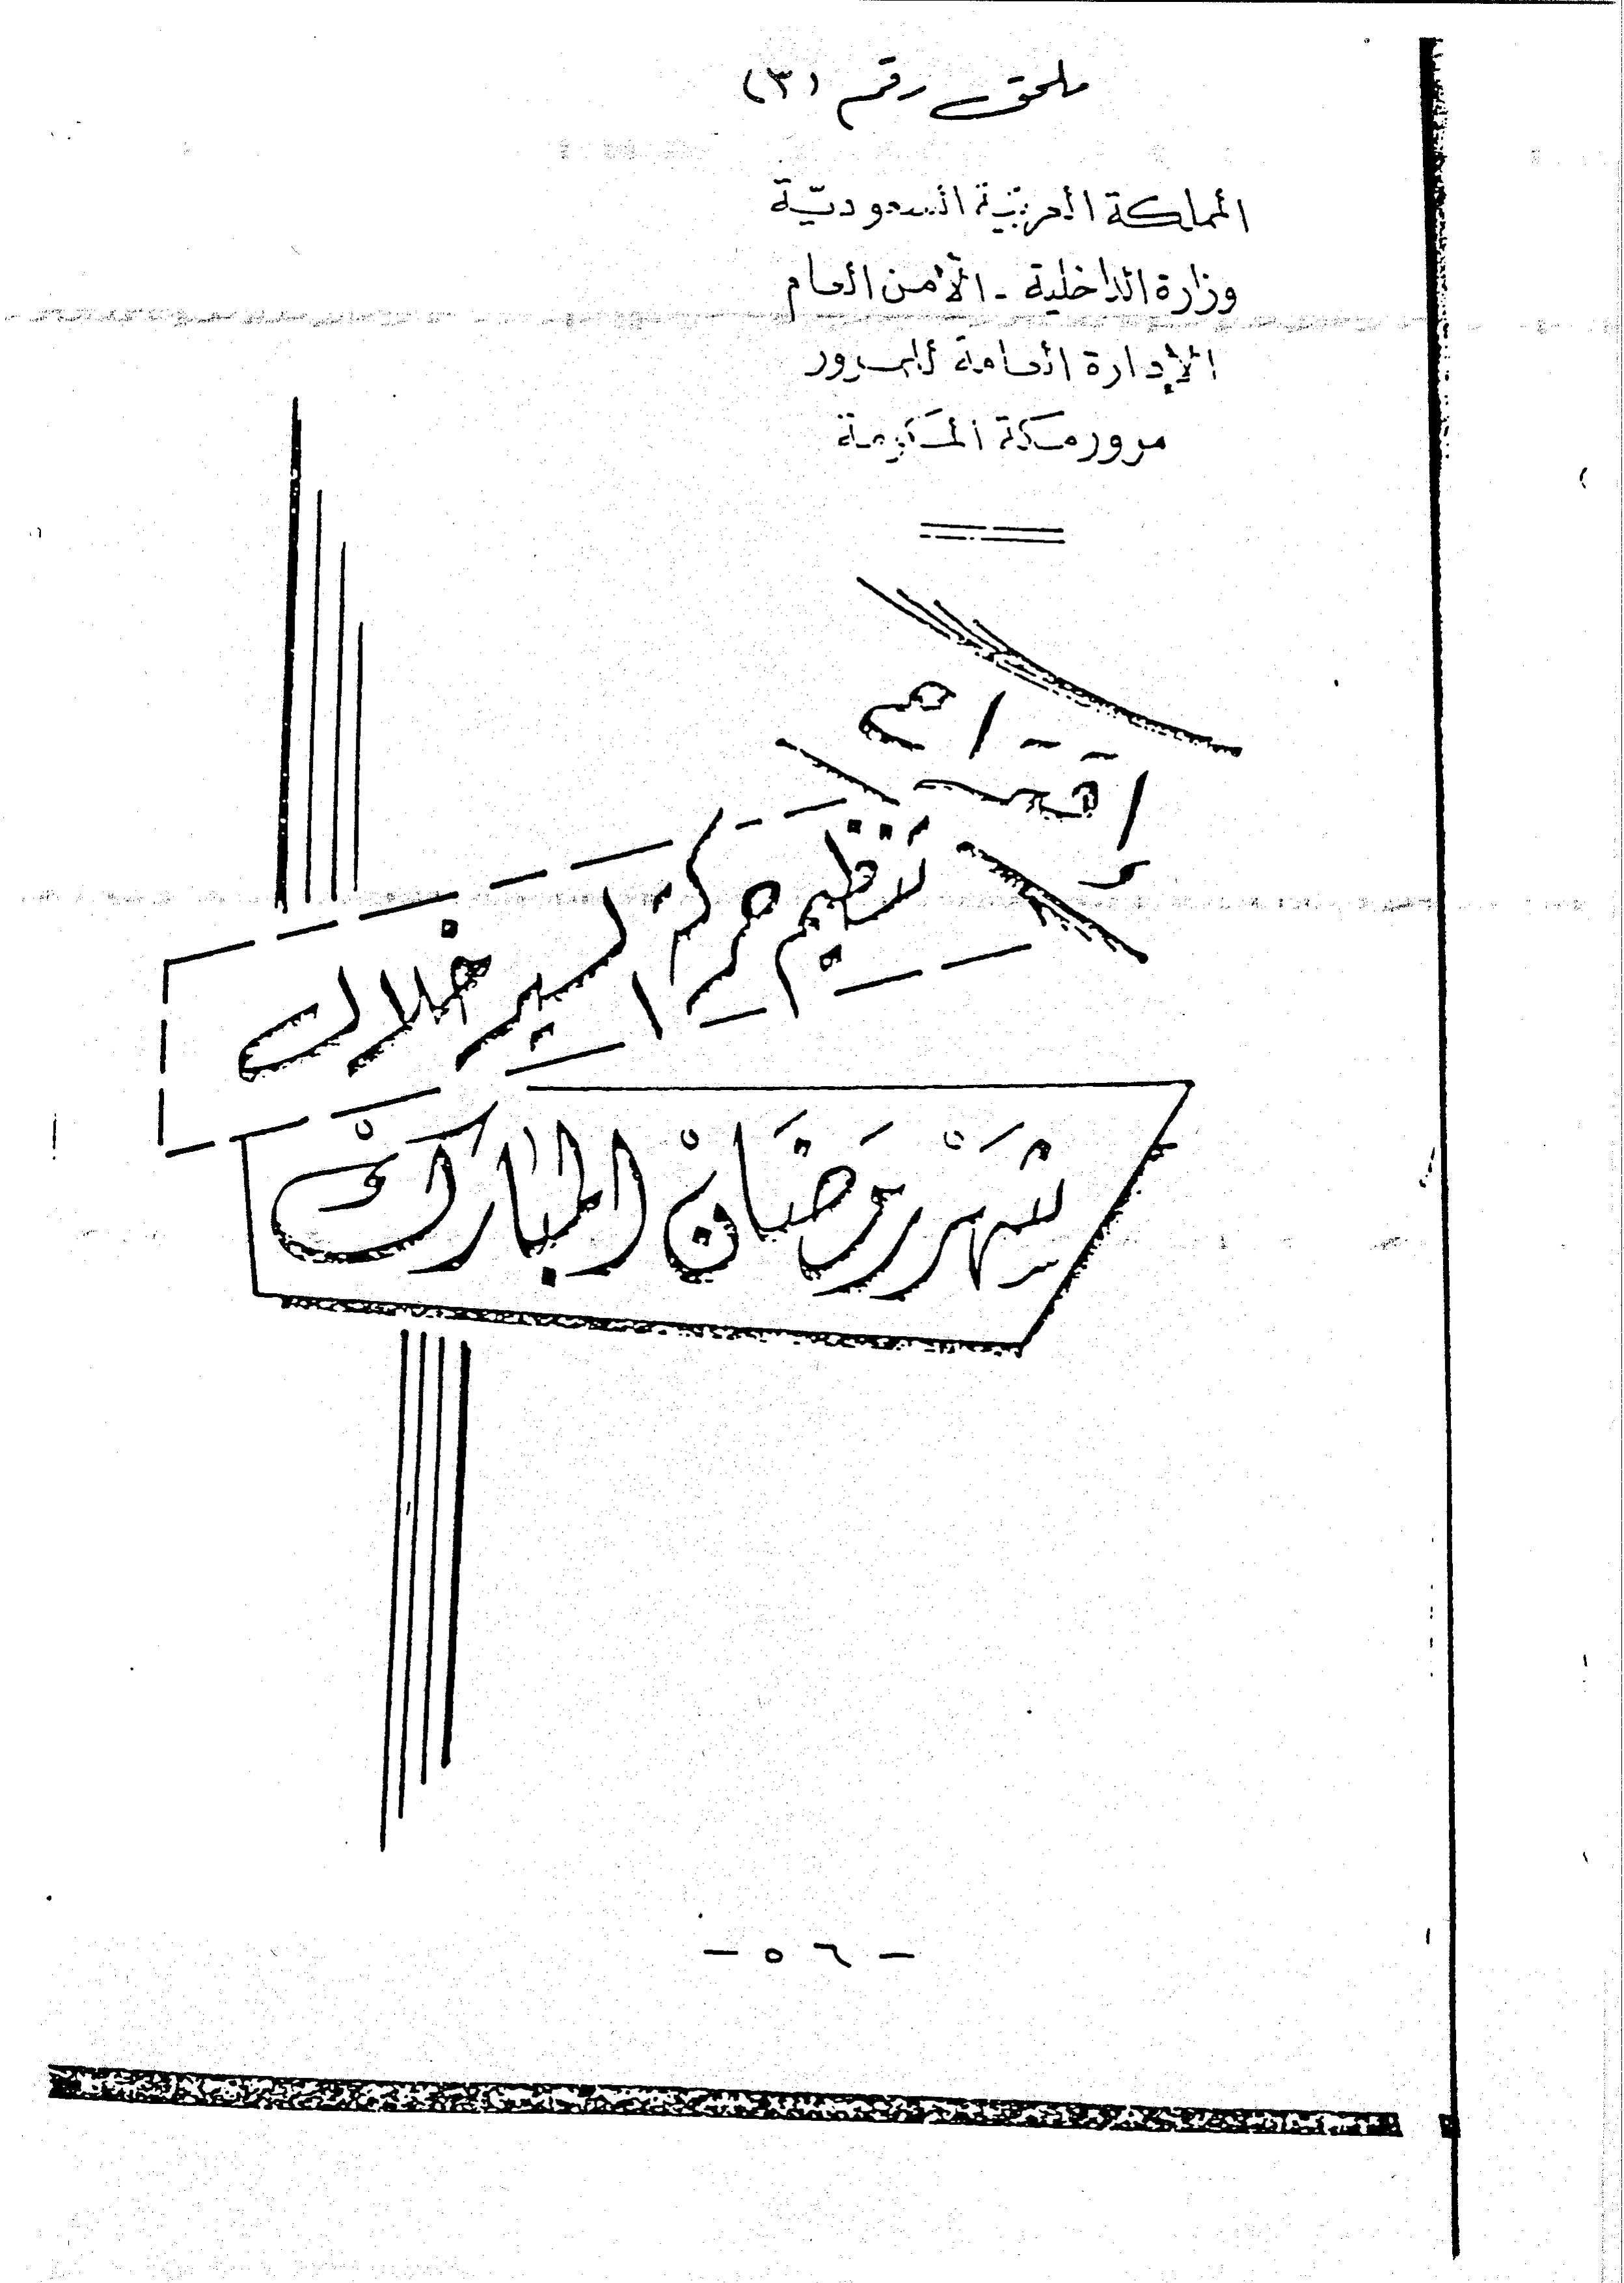 ملحق رقم (٣)
المملكة العربية السعودية
وزارة الداخلية - الأمن العام
الإدارة العامة للمرور
مرور مكة المكرمة
تنظيم حركة السير خلال
شَهْر رَمَضَانْ المبَارك
- ٥٦ -